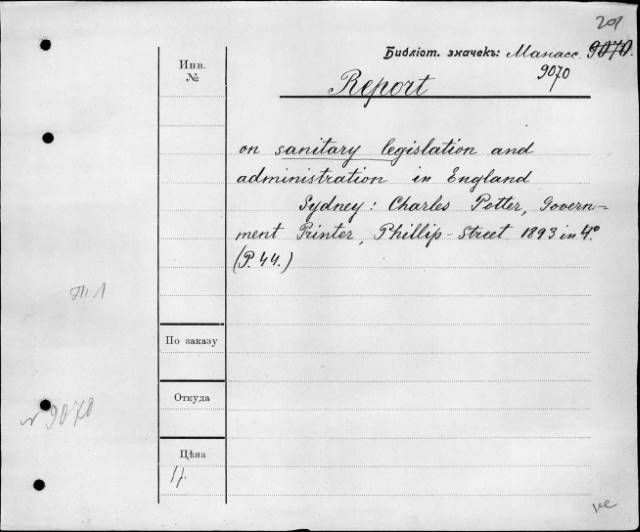 201
Библіот. значекъ: Манасс. 9070.
9070
Инв.
№
Report
on sanitary legislation and
administration in England
Sydney: Charles Potter, Govern-
ment Printer, Phillip-Street 1893 in 4°.
(P. 44.)
По заказу
Откуда
№ 9070
Цѣна